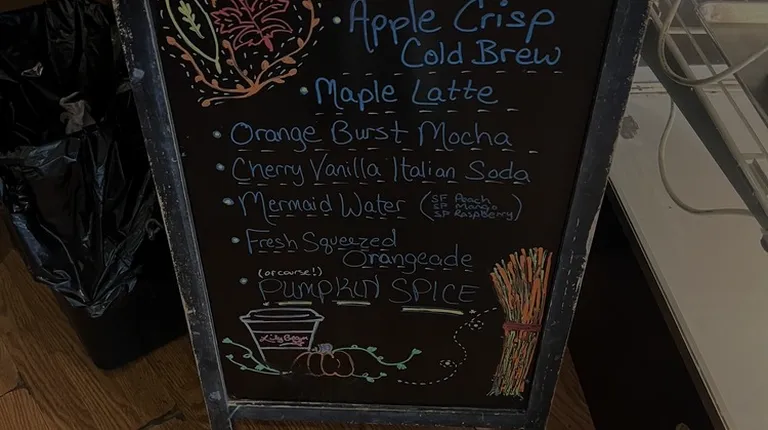 Apple Crisp
Cold Brew
Maple Latte
Orange Burst Mocha
Cherry Vanilla Italian Soda
Mermaid Water (SF Peach
SF Mango
SF Raspberry)
Fresh Squeezed
Orangeade
(of course!)
PUMPKIN SPICE